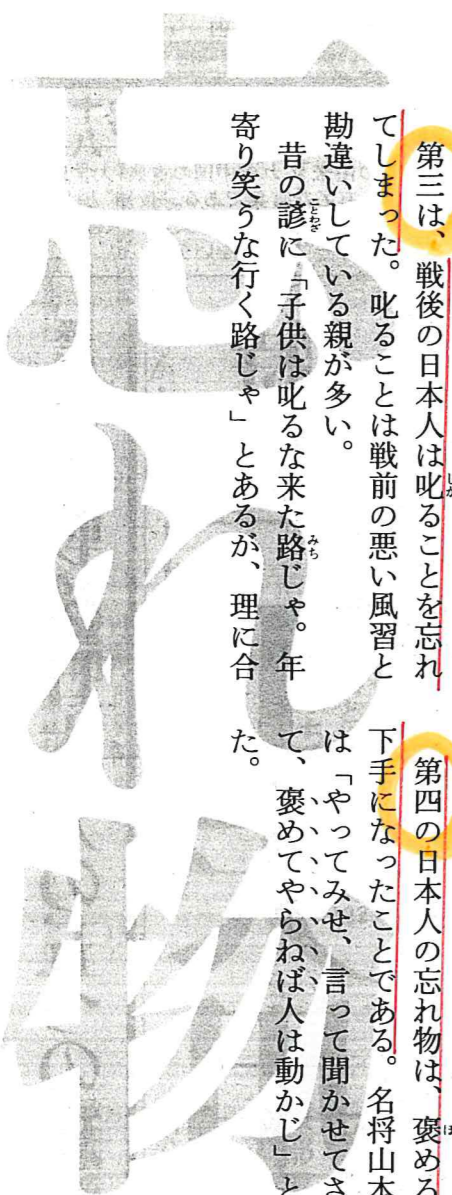 忘れ物
第三は、戦後の日本人は叱ることを忘れ
てしまった。叱ることは戦前の悪い風習と
勘違いしている親が多い。
昔の諺に「子供は叱るな来た路じゃ。年
寄り笑うな行く路じゃ」とあるが、理に合
第四の日本人の忘れ物は、褒める
下手になったことである。名将山本
は「やってみせ、言って聞かせてさ
て、褒めてやらねば人は動かじ」と
た。